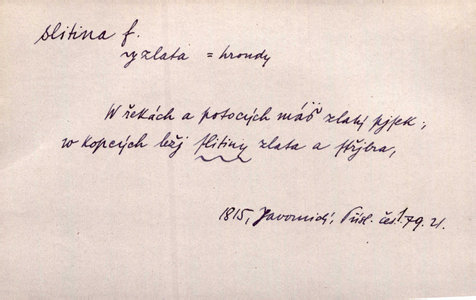 slitina f.
ryzlatá = hroudy
W řekách a potocých máš zlatý pjsek,
w kopcých ležj slitiny zlata a střjbra,
1815, Javornický, 79. 21.